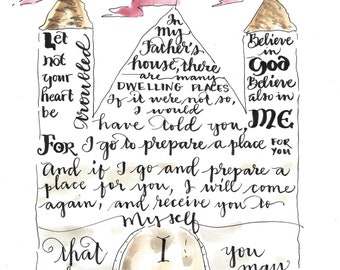 Let
not
your
heart
be
troubled
Believe
in
God
Believe
also in
ME
In
my
Father's
house, there
are many
DWELLING PLACES
If it were not so,
I would
have told you,
FOR I go to prepare a place FOR YOU
And if I go and prepare a
place for you, I will come
again, and receive you to
Myself
that I you
may